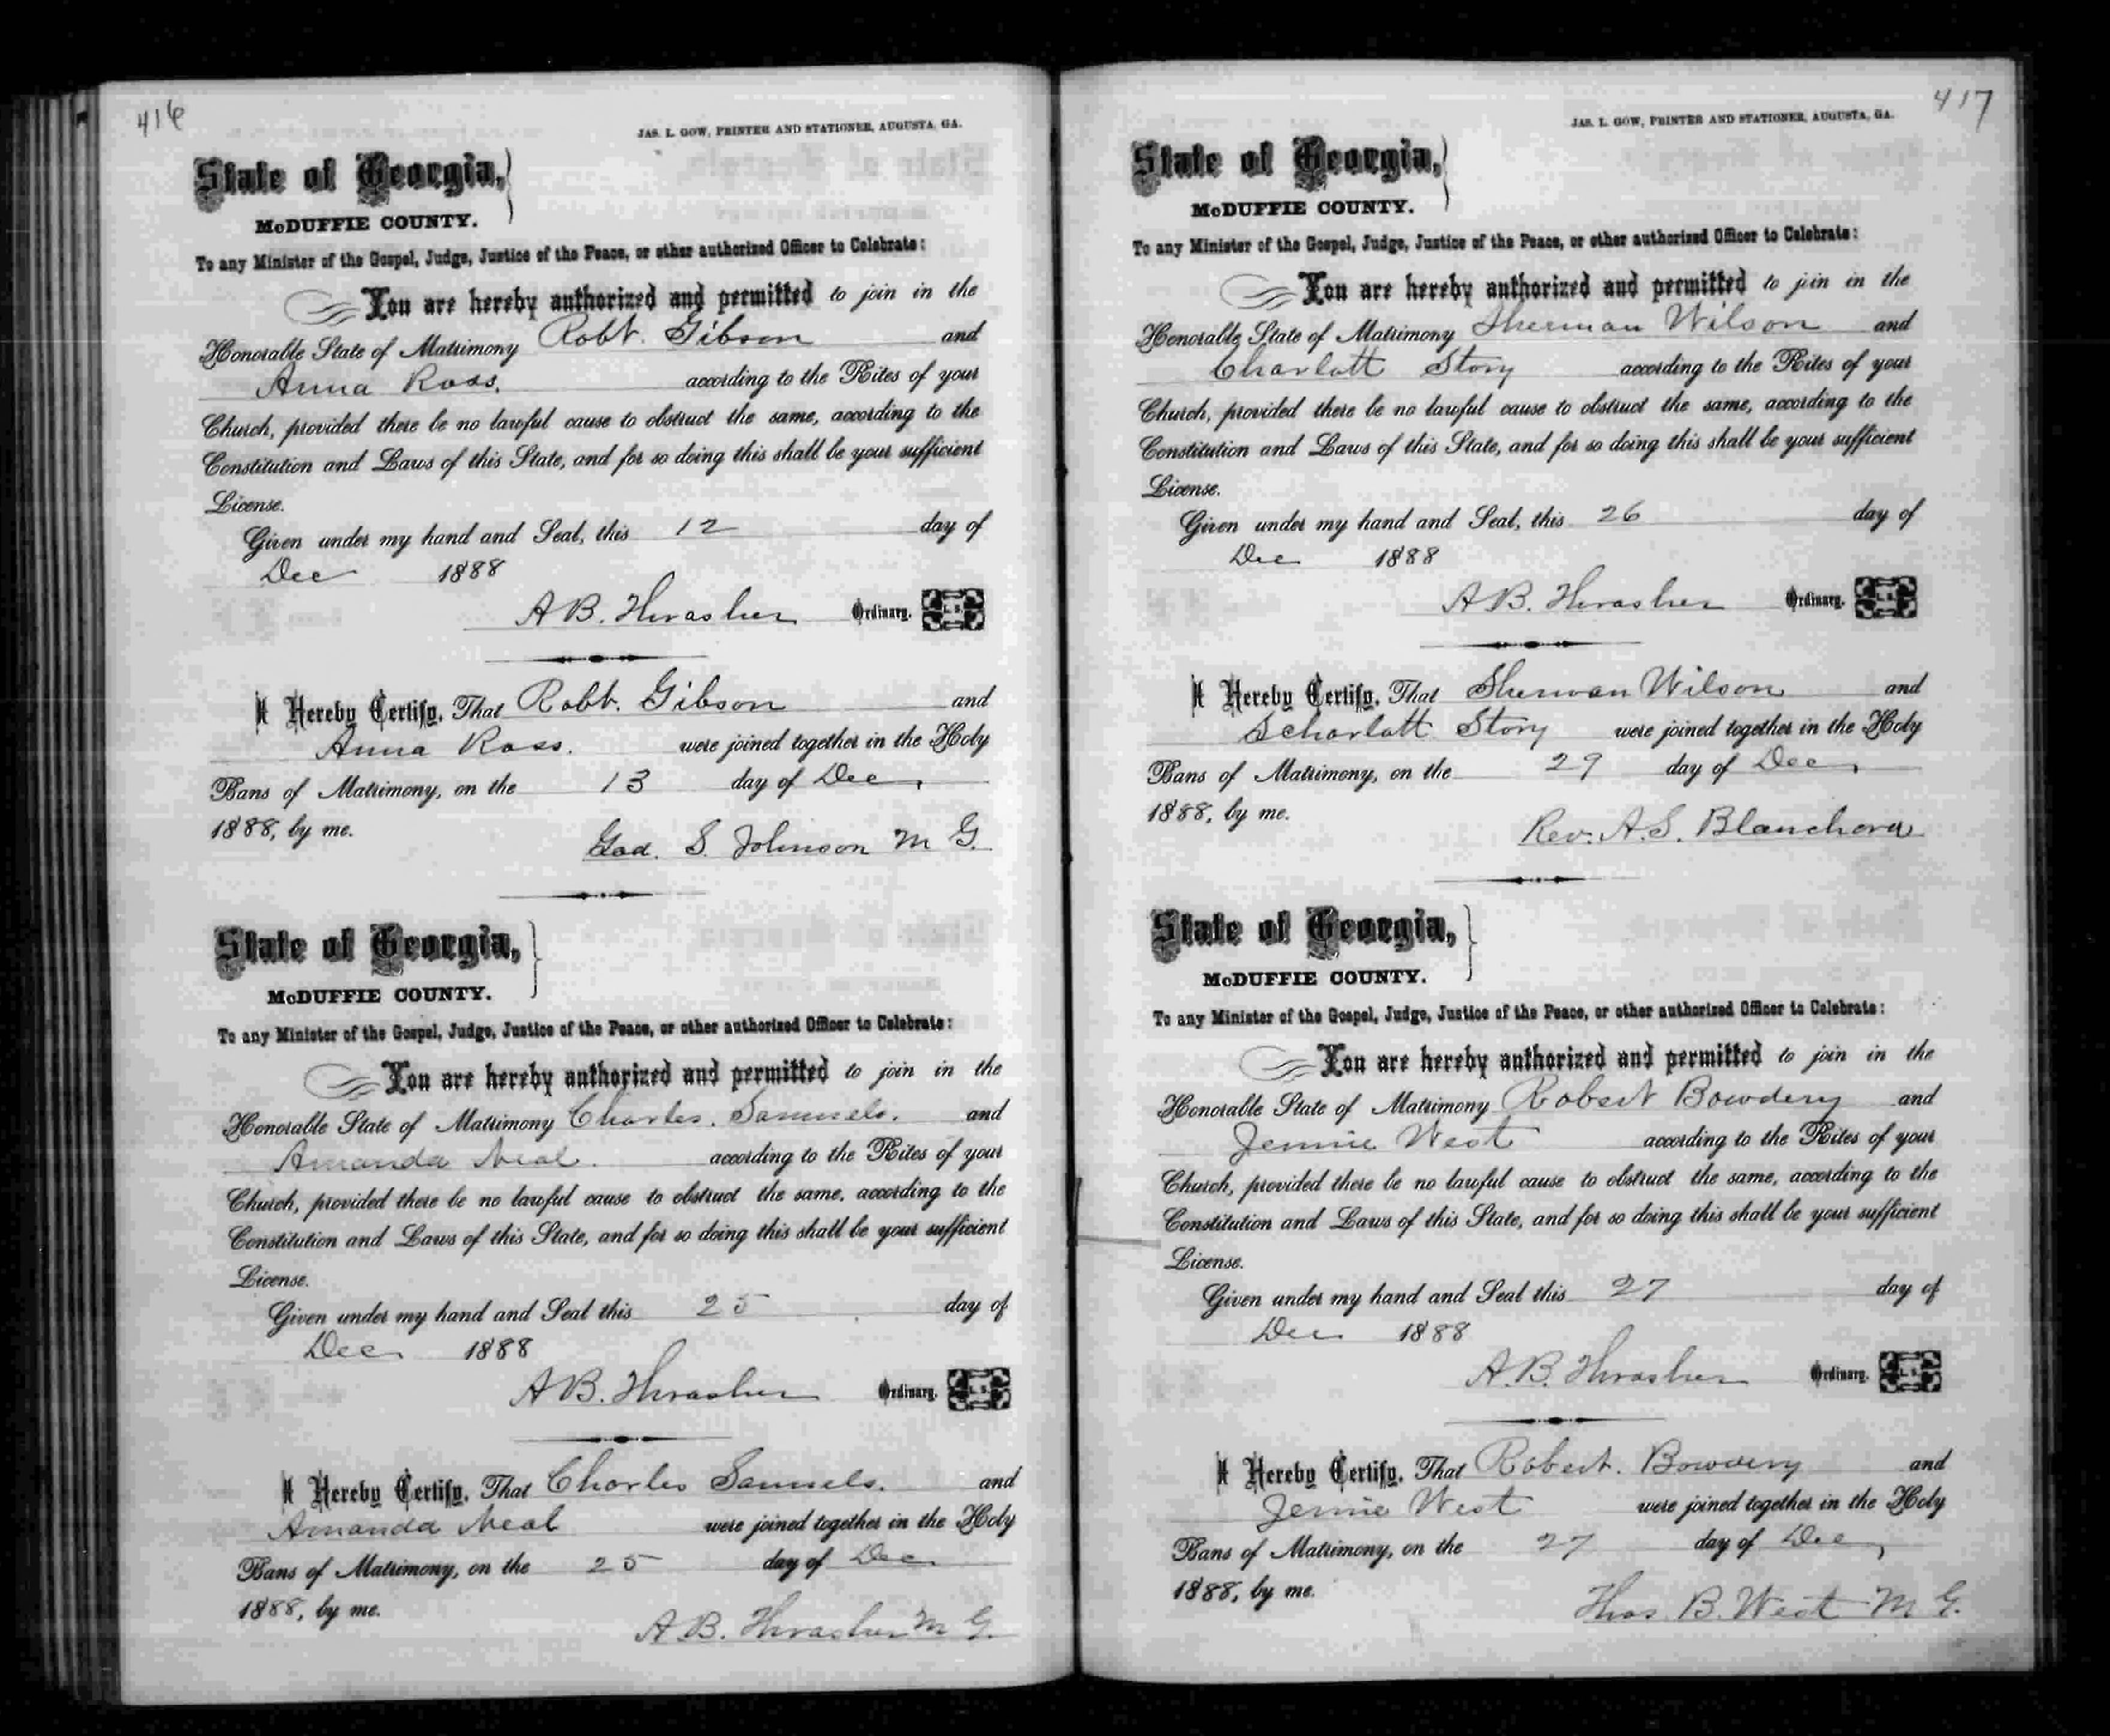 416
JAS. L. GOW, PRINTER AND STATIONER, AUGUSTA, GA.
State of Georgia,
McDUFFIE COUNTY.
To any Minister of the Gospel, Judge, Justice of the Peace, or other authorized Officer to Celebrate:
You are hereby authorized and permitted to join in the
Honorable State of Matrimony Robt. Gibson and
Anna Ross. according to the Rites of your
Church, provided there be no lawful cause to obstruct the same, according to the
Constitution and Laws of this State, and for so doing this shall be your sufficient
License.
Given under my hand and Seal, this 12 day of
Dec 1888
A B. Thrasher Ordinary. L. S.
I Hereby Certify, That Robt. Gibson and
Anna Ross. were joined together in the Holy
Bans of Matrimony, on the 13 day of Dec,
1888, by me.
Gad. S. Johnson M G.
State of Georgia,
McDUFFIE COUNTY.
To any Minister of the Gospel, Judge, Justice of the Peace, or other authorized Officer to Celebrate:
You are hereby authorized and permitted to join in the
Honorable State of Matrimony Charles. Samuels. and
Amanda Neal. according to the Rites of your
Church, provided there be no lawful cause to obstruct the same, according to the
Constitution and Laws of this State, and for so doing this shall be your sufficient
License.
Given under my hand and Seal this 25 day of
Dec 1888
A B. Thrasher Ordinary. L. S.
I Hereby Certify, That Charles Samuels. and
Amanda Neal were joined together in the Holy
Bans of Matrimony, on the 25 day of Dec
1888, by me.
A B. Thrasher M G.
417
JAS. L. GOW, PRINTER AND STATIONER, AUGUSTA, GA.
State of Georgia,
McDUFFIE COUNTY.
To any Minister of the Gospel, Judge, Justice of the Peace, or other authorized Officer to Celebrate:
You are hereby authorized and permitted to join in the
Honorable State of Matrimony Sherman Wilson and
Charlatt Story according to the Rites of your
Church, provided there be no lawful cause to obstruct the same, according to the
Constitution and Laws of this State, and for so doing this shall be your sufficient
License.
Given under my hand and Seal, this 26 day of
Dec 1888
A B. Thrasher Ordinary. L. S.
I Hereby Certify, That Sherman Wilson and
Scharlatt Story were joined together in the Holy
Bans of Matrimony, on the 29 day of Dec,
1888, by me.
Rev. A. S. Blanchard
State of Georgia,
McDUFFIE COUNTY.
To any Minister of the Gospel, Judge, Justice of the Peace, or other authorized Officer to Celebrate:
You are hereby authorized and permitted to join in the
Honorable State of Matrimony Robert Bowdery and
Jennie West according to the Rites of your
Church, provided there be no lawful cause to obstruct the same, according to the
Constitution and Laws of this State, and for so doing this shall be your sufficient
License.
Given under my hand and Seal this 27 day of
Dec 1888
A. B. Thrasher Ordinary. L. S.
I Hereby Certify, That Robert. Bowdery and
Jennie West were joined together in the Holy
Bans of Matrimony, on the 27 day of Dec,
1888, by me.
Thos B. West M G.